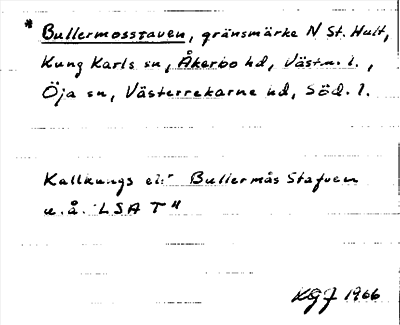 * Bullermosstaven, gränsmärke N St. Hult,
Kung Karls sn, Åkerbo hd, Västm. l.,
Öja sn, Västerrekarne hd, Söd. l.
Kallkungs el:r Bullermås Stafven
u.å. LSA T 4
KGJ 1966